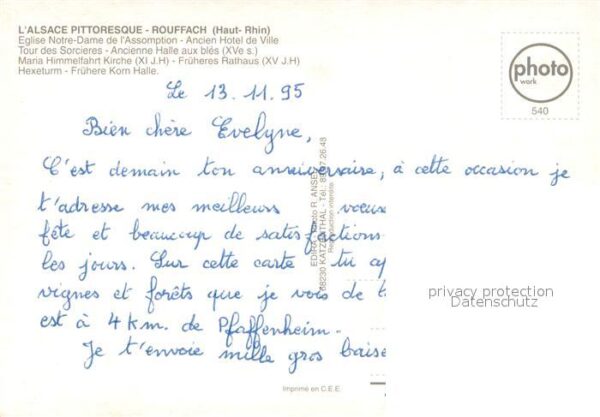 L'ALSACE PITTORESQUE - ROUFFACH (Haut-Rhin)
Eglise Notre-Dame de l'Assomption - Ancien Hotel de Ville
Tour des Sorcieres - Ancienne Halle aux blés (XVe s.)
Maria Himmelfahrt Kirche (XI J.H) - Früheres Rathaus (XV J.H)
Hexeturm - Frühere Korn Halle.
photo
work
540
Le 13.11.95
Bien chère Evelyne,
C'est demain ton anniversaire, à cette occasion je
t'adresse mes meilleurs voeux
fête et beaucoup de satisfactions
les jours. Sur cette carte tu
vignes et forêts que je vois de
est à 4 km. de Pfaffenheim.
Je t'envoie mille gros baise
68230 KATZENTHAL - Tél.
Reproduction interdite
privacy protection
Datenschutz
Imprimé en C.E.E.